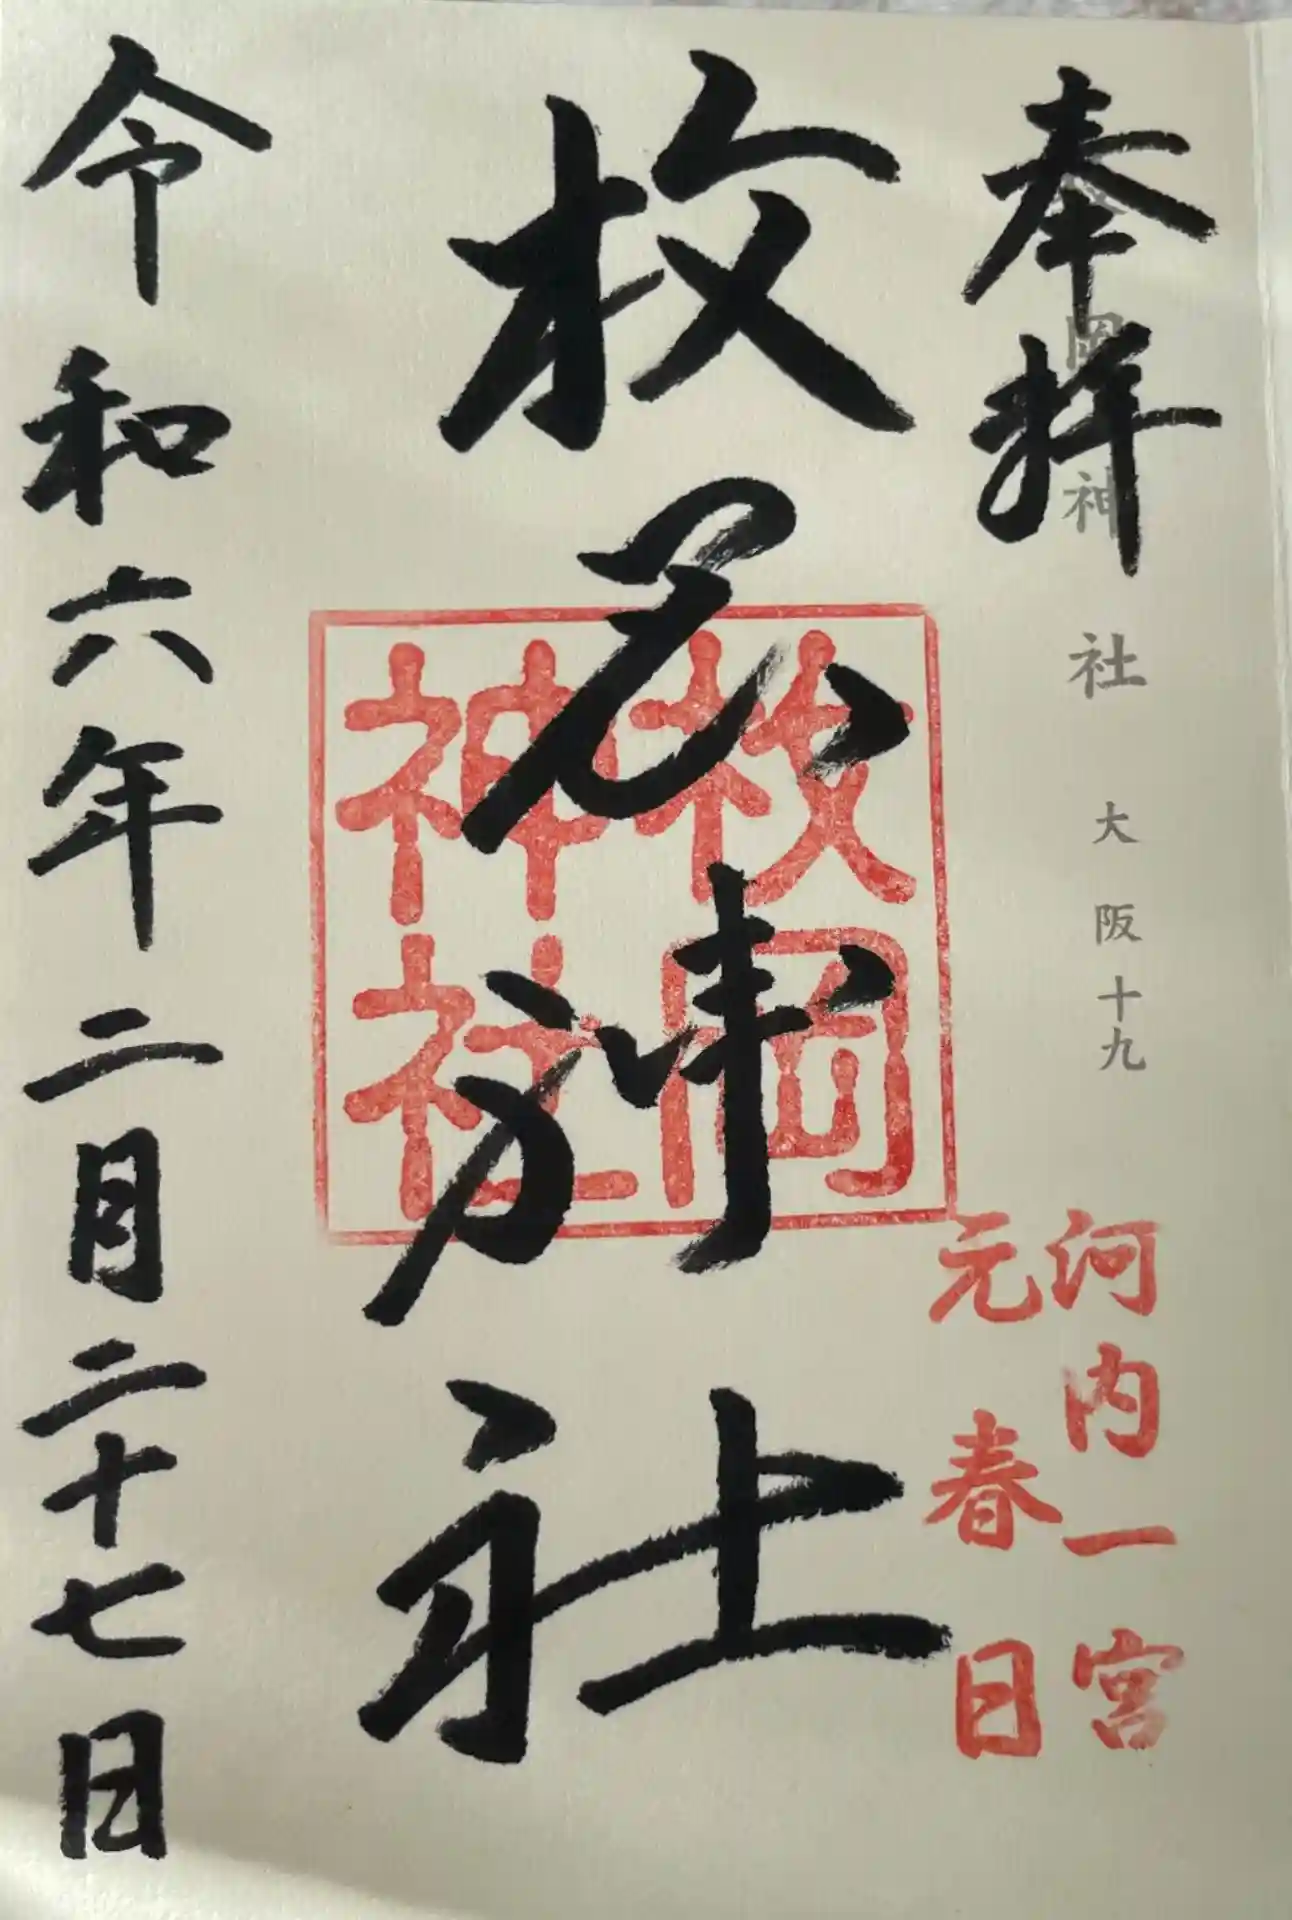 奉拝
岡神社 大阪十九
河内一宮
元春日
枚岡神社
枚岡
神社
令和六年二月二十七日